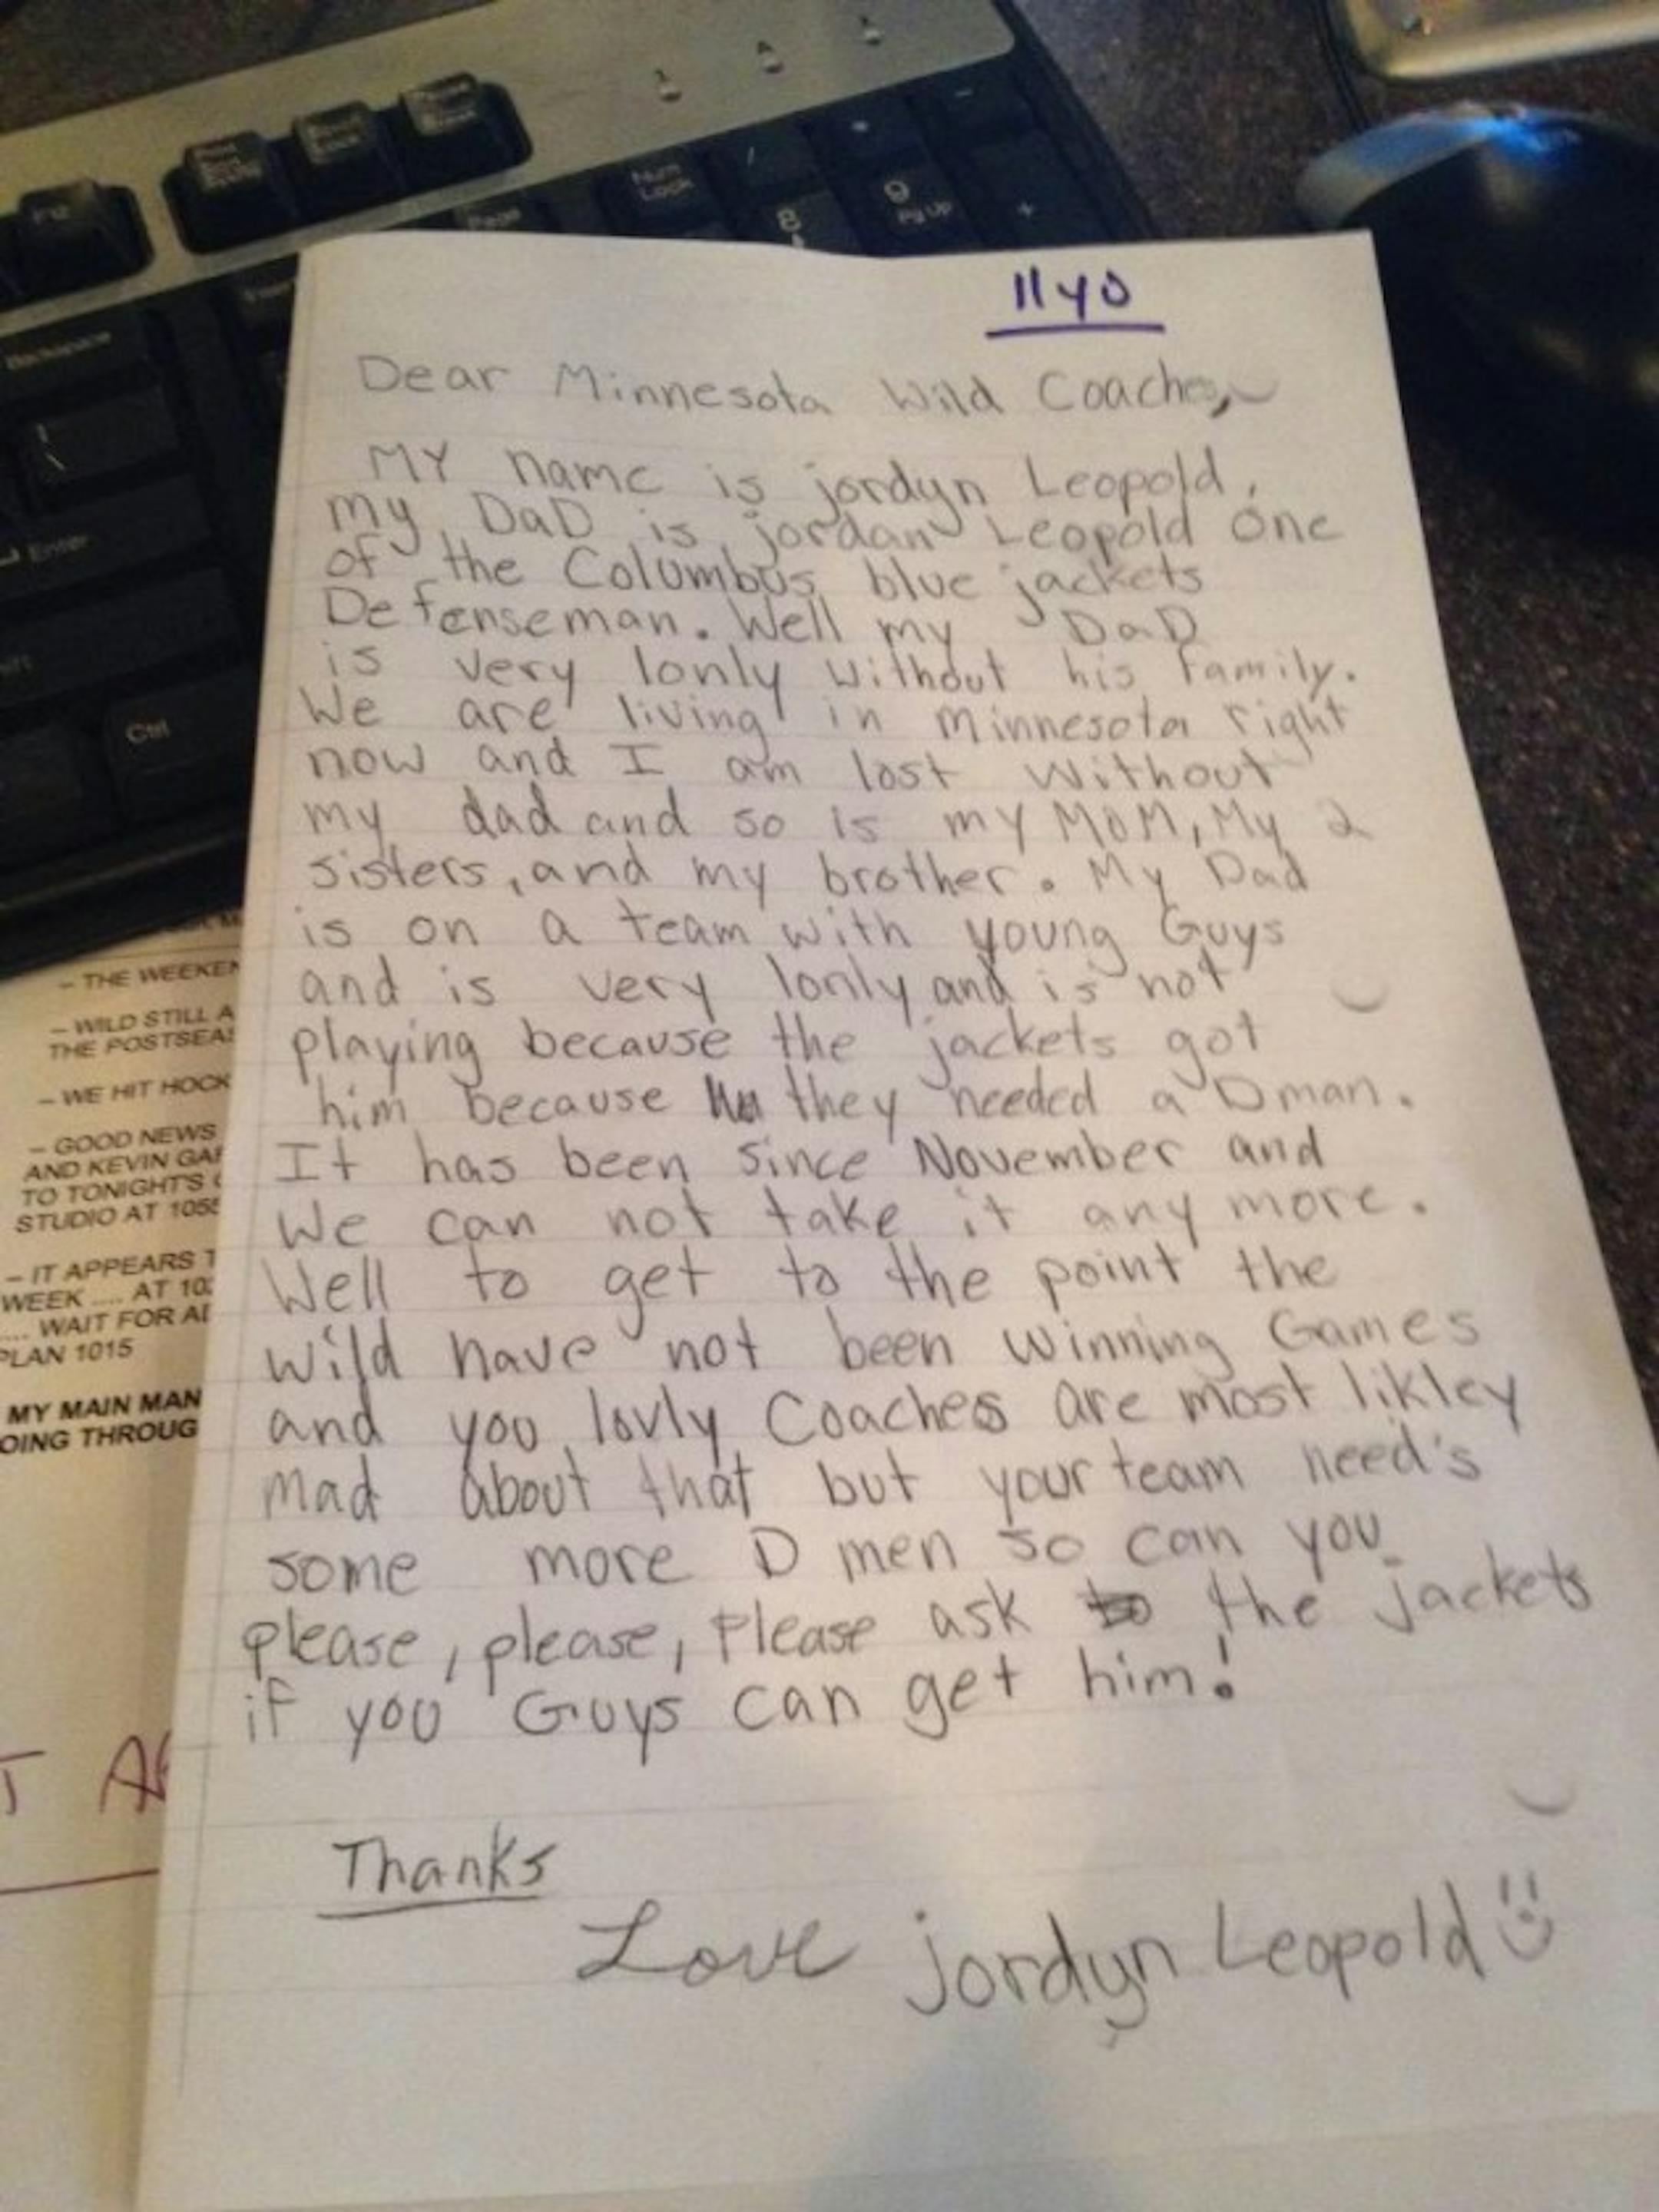 Num Lock
/
*
-
8
9
Pg Up
+
Page
F12
Backspace
Enter
Ctrl
11 yo
Dear Minnesota Wild Coaches,
MY name is jordyn Leopold,
my DaD is jordan Leopold One
of the Columbus blue jackets
Defenseman. Well my DaD
is very lonly without his family.
We are living in Minnesota right
now and I am lost without
my dad and so is my MOM, My 2
sisters, and my brother. My Dad
is on a team with young Guys
and is very lonly and is not
playing because the jackets got
him because they needed a D man.
It has been since November and
We can not take it any more.
Well to get to the point the
wild have not been winning Games
and you lovly Coaches are most likley
mad about that but your team need's
some more D men so can you
please, please, Please ask to the jackets
if you Guys can get him!
Thanks
Love jordyn Leopold
– THE WEEKEN
– WILD STILL A
THE POSTSEA
– WE HIT HOCK
– GOOD NEWS
AND KEVIN GA
TO TONIGHT'S
STUDIO AT 105
– IT APPEARS T
WEEK .... AT 10:
.... WAIT FOR AL
PLAN 1015
MY MAIN MAN
OING THROUG
T A